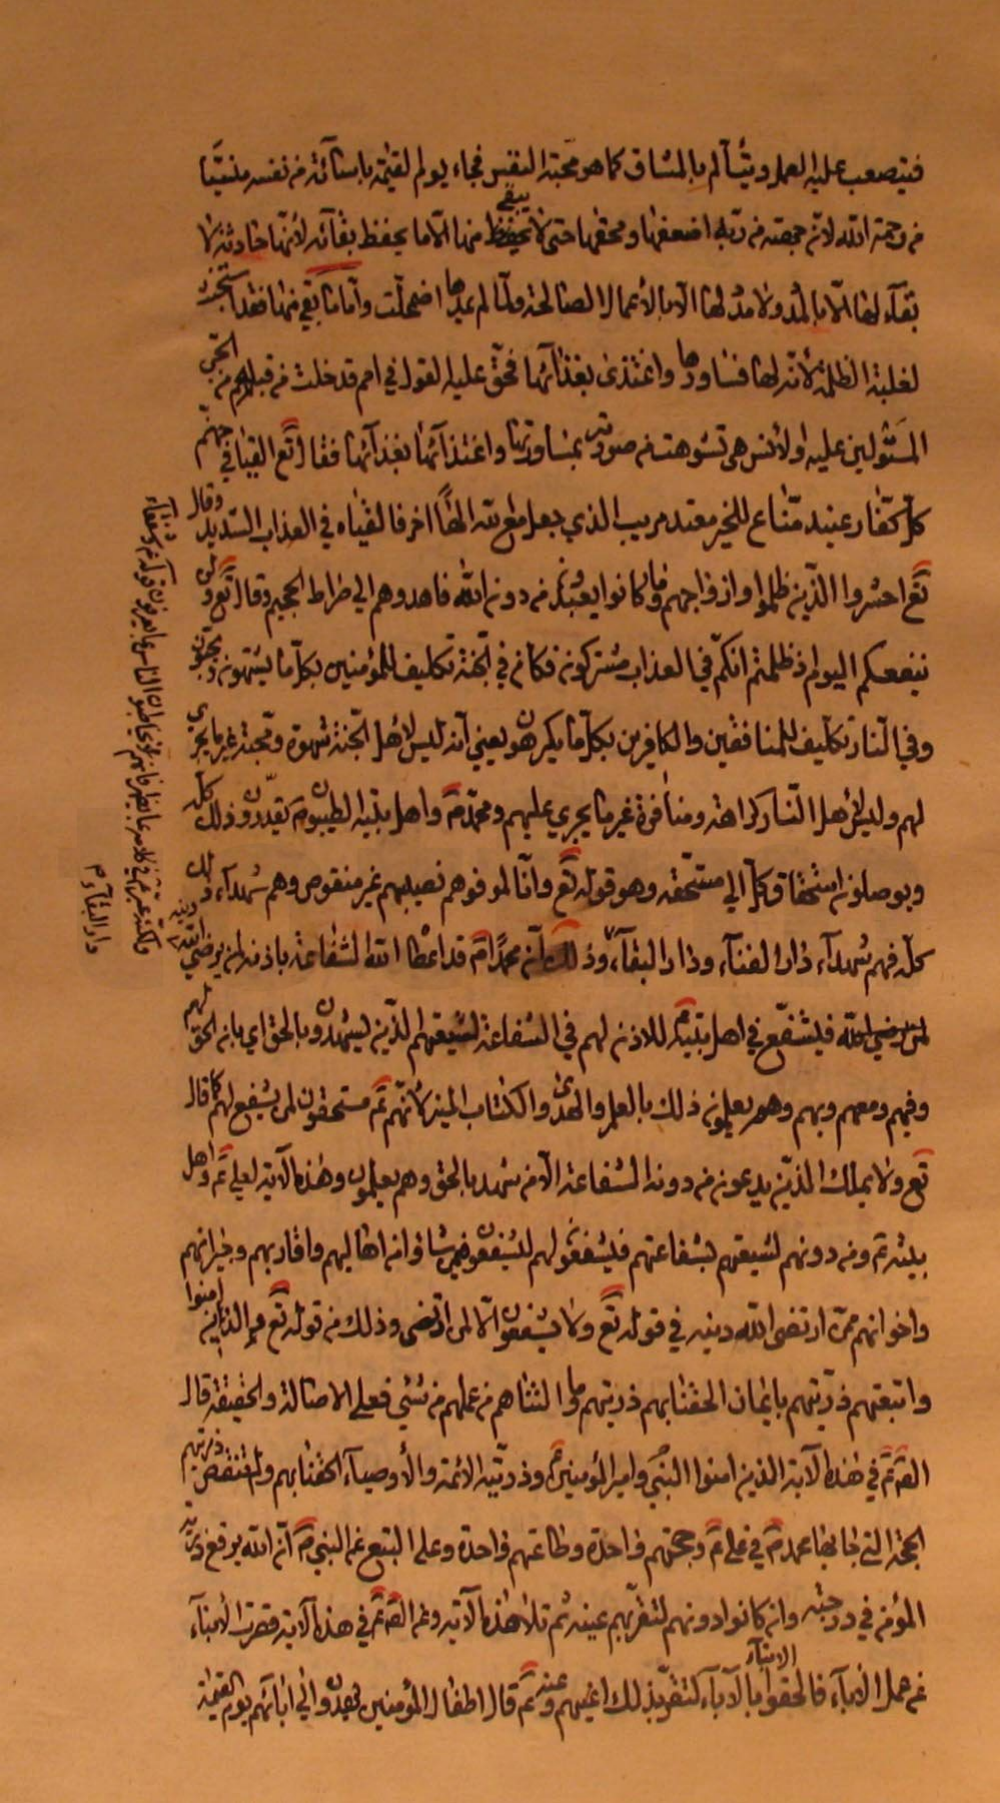 فيتصعب عليه العمل ويتألم بالمشاق كما هو محبته النفس فجاء يوم القيمة باستآئة من نفسه منعيّا
من رحمة الله لانّ حصته من ربّه اضعفها ومحقها حتى لا يبقى منها الّا ما يحفظ بقآئه لأنّها حادثة لا
بقآء لها الّا بالمدد ولا مدد لها الّا بالأعمال الصالحة ولمّا لم يمدها اضمحلّت وامّا ما بقى منها فقد استجنت
لغلبة الظلمة لأنّه لها فساودها واغتذى بغذائها فحقّ عليه القول في امم قد خلت من قبلهم من الجنّ
المستولين عليه والأنس هى تشوهت من صورته بمساودتها واغتذآئها بغذآئها فقال تع القيا في جهنّم
كلّ كفّار عنيد منّاع للخير معتد مريب الذي جعل مع الله الهًا اخر فالقياه في العذاب الشديد وقال
تع احشروا الذين ظلموا وازواجهم وما كانوا يعبدون من دون الله فاهدوهم الى صراط الجحيم وقال تع ولن
ينفعكم اليوم اذ ظلمتم انكم في العذاب مشتركون فكان في الجنة تكليف للمؤمنين بكلّ ما يشتهون ويحبّون
وفي النار تكليف للمنافقين والكافرين بكلّ ما يكرهون يعني انّه ليس لأهل الجنة شهوة ومحبة غير ما يجري
لهم وليس لأهل النّار كراهة ومنافرة غير ما يجري عليهم ومحمّد ص واهل بيته الطيبون يقدّرون ذلك كلّه
ويوصلون استحقاق كلّ الى مستحقه وهو قوله تع وانّا لموفوهم نصيبهم غير منقوص وهم شهدآء ذلك
كلّه فهم شهدآء دار الفنآء ودار البقآء، وذلك انّ محمدًا ص قد اعطاه الله الشفاعة باذنه لمن يرضى الله دينه
فيشفّع في اهل بيته للاذن لهم في الشفاعة لشيعتهم الذين يشهدون بالحق اي بان الحق لهم
وفيهم ومعهم وبهم وهم يعلمون ذلك بالعلم والهدى والكتاب المنير لأنّهم ع مستحقون لمن يشفع لهم كما قال
تع ولا يملك الذين يدعون من دونه الشفاعة الّا من شهد بالحق وهم يعلمون وهذه الآية لعلي ع واهل
بيته ع ومن دونهم لشيعتهم بشفاعتهم فيشفعون لهم ليشفعوا فيمن شاؤا من اهاليهم واقاربهم وجيرانهم
واخوانهم ممن ارتضى الله دينه في قوله تع ولا يشفعون الّا لمن ارتضى وذلك من قوله تع والذين امنوا
واتبعتهم ذريّتهم بايمان الحقنا بهم ذريتهم وما التناهم من عملهم من شئي فعلى الاصالة والحقيقة قال
الصّ ع في هذه الآية الذين امنوا النبي وامير المؤمنين ع وذريّته الأئمة والأوصيآء الحقنا بهم ولم ننقص ذريتهم
الحجة التي جا بها محمد ص في علي ع وحجتهم واحدة وطاعتهم واحدة وعلى التبع عن النبي ص انّ الله يرفع ذرية
المؤمن في درجته وان كانوا دونهم لتقرّ بهم عينه ثم تلا هذه الآية وعن الصّ ع في هذه الآية قصرت الأبناء
عن عمل الأباء فالحقوا الابناء بالآباء لتقرّ بذلك اعينهم وعنه ع قال اطفال المؤمنين يهدون الى ابائهم يوم القيمة
دار البقآء م